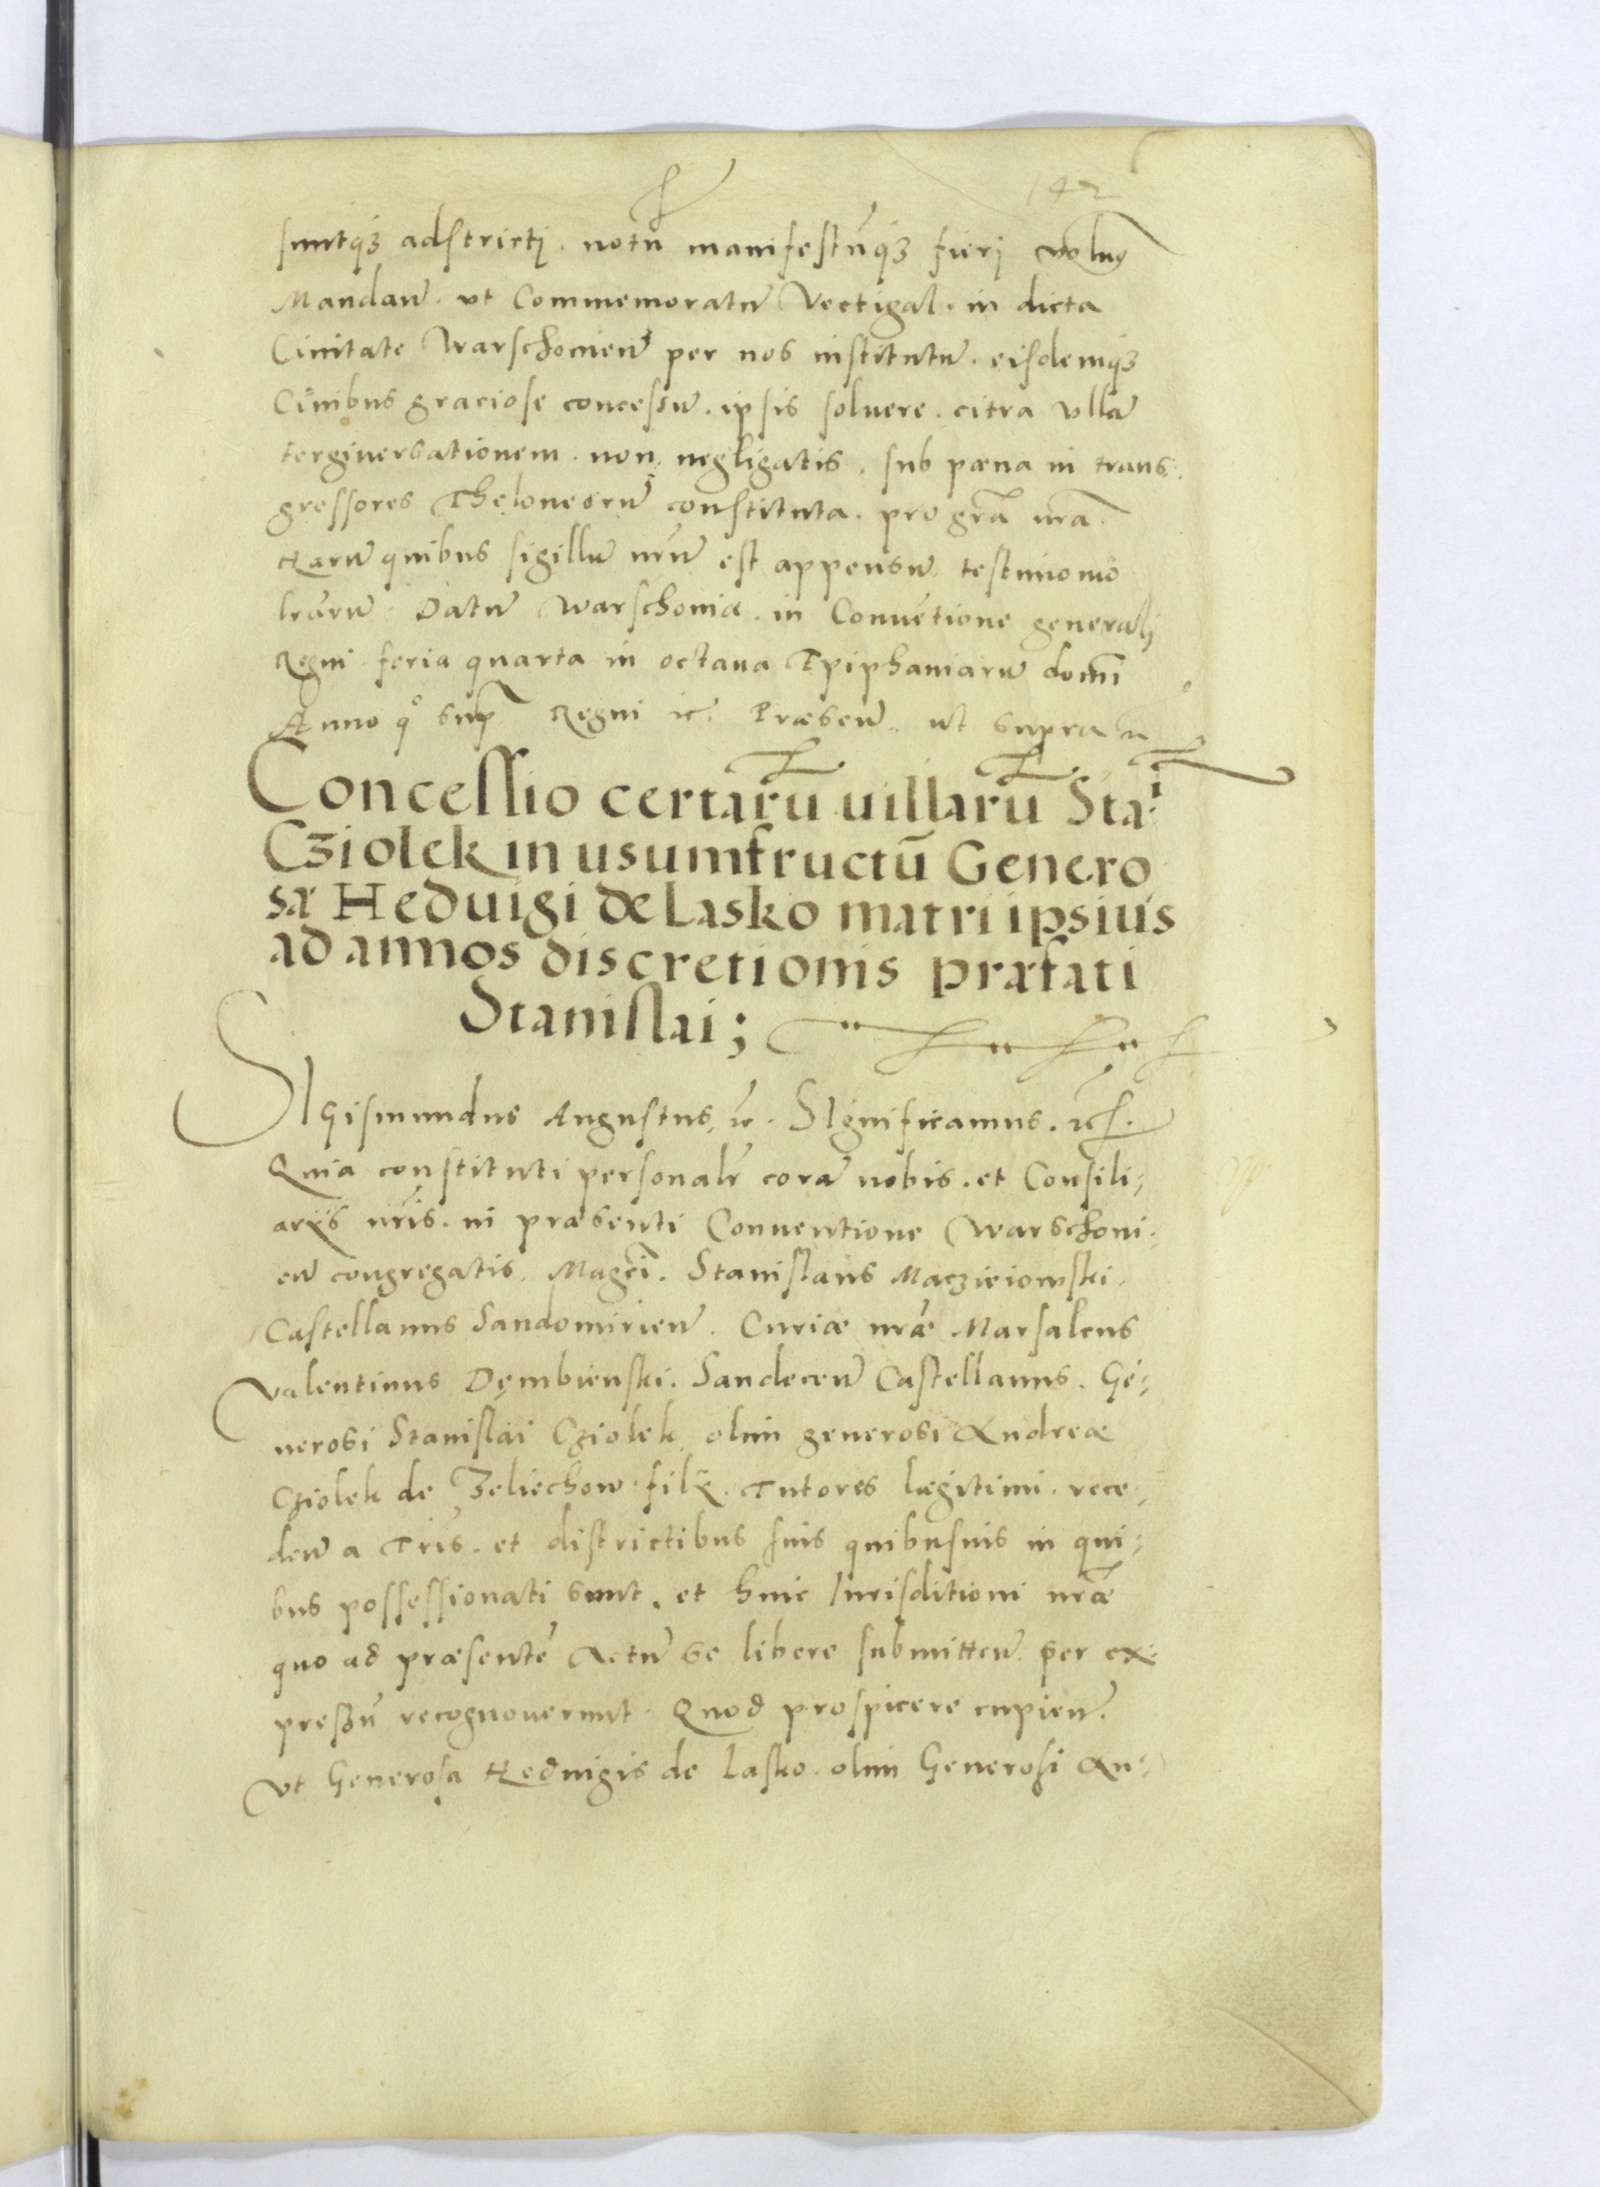 142
suntq₃ adstrictj. notū manifestūq₃ fierj volum9
Mandañ. vt Commemoratū Vectigal. in dicta
Ciuitate Warschouień per nos institutū. eisdemq₃
Ciuibus graciose concessū. ipsis soluere. citra vllā
tergiuersationem. non negligatis. sub pœna in trans:
gressores Theloneorū constituta. pro grā nrā.
Harū quibus sigillū nrm̄ est appensū testimonio
lrārū. Datū Warschouiæ. in Conuētione generalj
Regni feria quarta in octaua Epiphaniarū domī
Anno q° sup̄ Regni ꝛc. Præseñ. ut supra
Concessio certarū uillarū Staⁱ
Cziolek in usumfructū Genero
sæ Heduigi de Lasko matri ipsius
ad annos discretionis præfati
Stanislai;
SIgismundus Augustus ꝛc. SIgnificamus. ꝛc.
Quia constituti personalr̄ corā nobis. et Consili:
arijs nrīs. in præsenti Conuentione Warschoui:
eñ congregatis. Magcī. Stanislaus Maczieiowski.
Castellanus Sandomirień. Curiæ nrǣ Marsalcus
Valentinus Dembienski. Sandeceñ Castellanus. Ge:
nerosi Stanislai Cziolek. olim generosi Andreæ
Cziolek de Zeliechow. filij. Tutores lægitimi. rece:
deñ a Trīs. et districtibus suis quibusuis in qui:
bus possessionati sunt. et huic Iurisditioni nrǣ
quo ad præsentē Actū se libere submitteñ. per ex:
pressū recognouerunt. Quod prospicere cupień.
Vt Generosa Heduigis de Lasko. olim Generosi An: